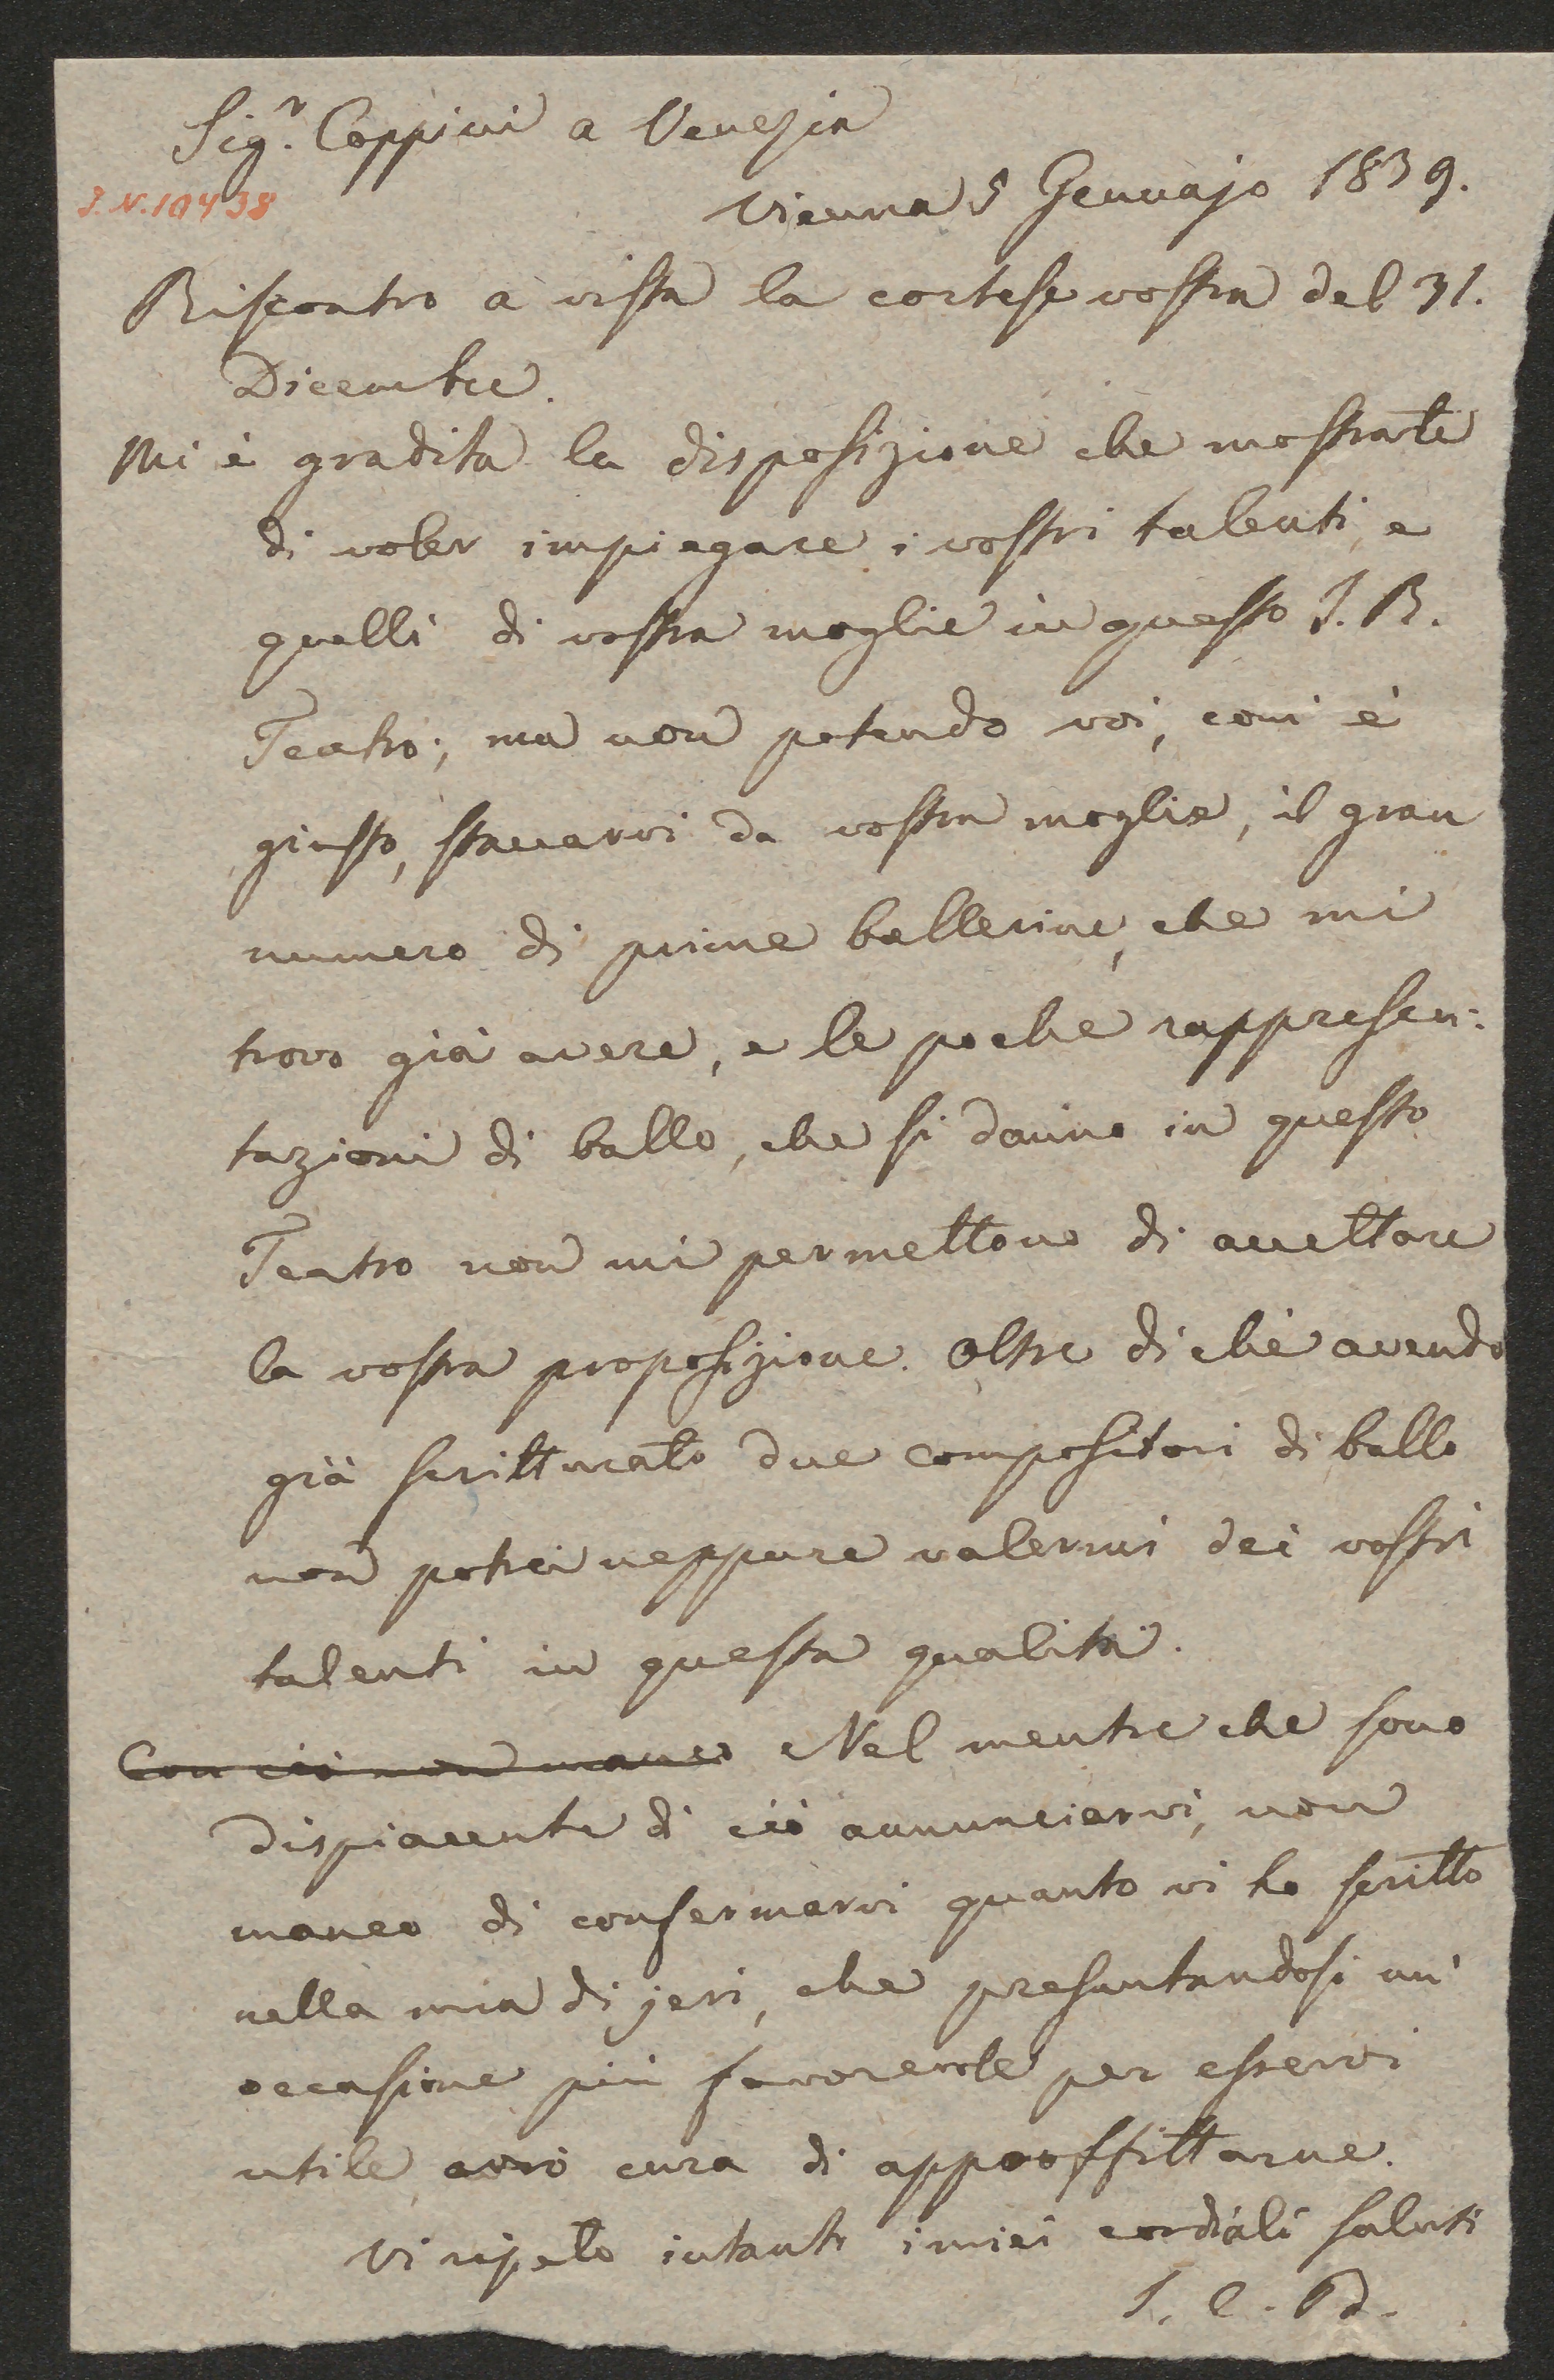 Sig.r Coppini a Venezia
I.N.10438
Vienna 5 Gennajo 1839.
Riscontro a vista la cortese vostra del 31.
Dicembre.
Mi è gradita la disposizione che mostrate
di voler impiegare i vostri talenti, e
quelli di vostra moglie in questo I. R.
Teatro; ma non potendo voi, com'è
giusto, staccarvi da vostra moglie, il gran
numero di prime ballerine, che mi
trovo già avere, e le poche rappresen:
tazioni di ballo, che si danno in questo
Teatro non mi permettono di accettare
la vostra proposizione. Oltre di chè avendo
già scritturato due compositori di ballo
non potrei neppure valermi dei vostri
talenti in questa qualità.
Con ciò non manco Nel mentre che sono
dispiacente di ciò annunciarvi, non
manco di confermarvi quanto vi ho scritto
nella mia di jeri, che presentandosi un'
occasione più favorevole per esservi
utile avrò cura di approffittarne.
Vi ripeto intanto i miei cordiali saluti